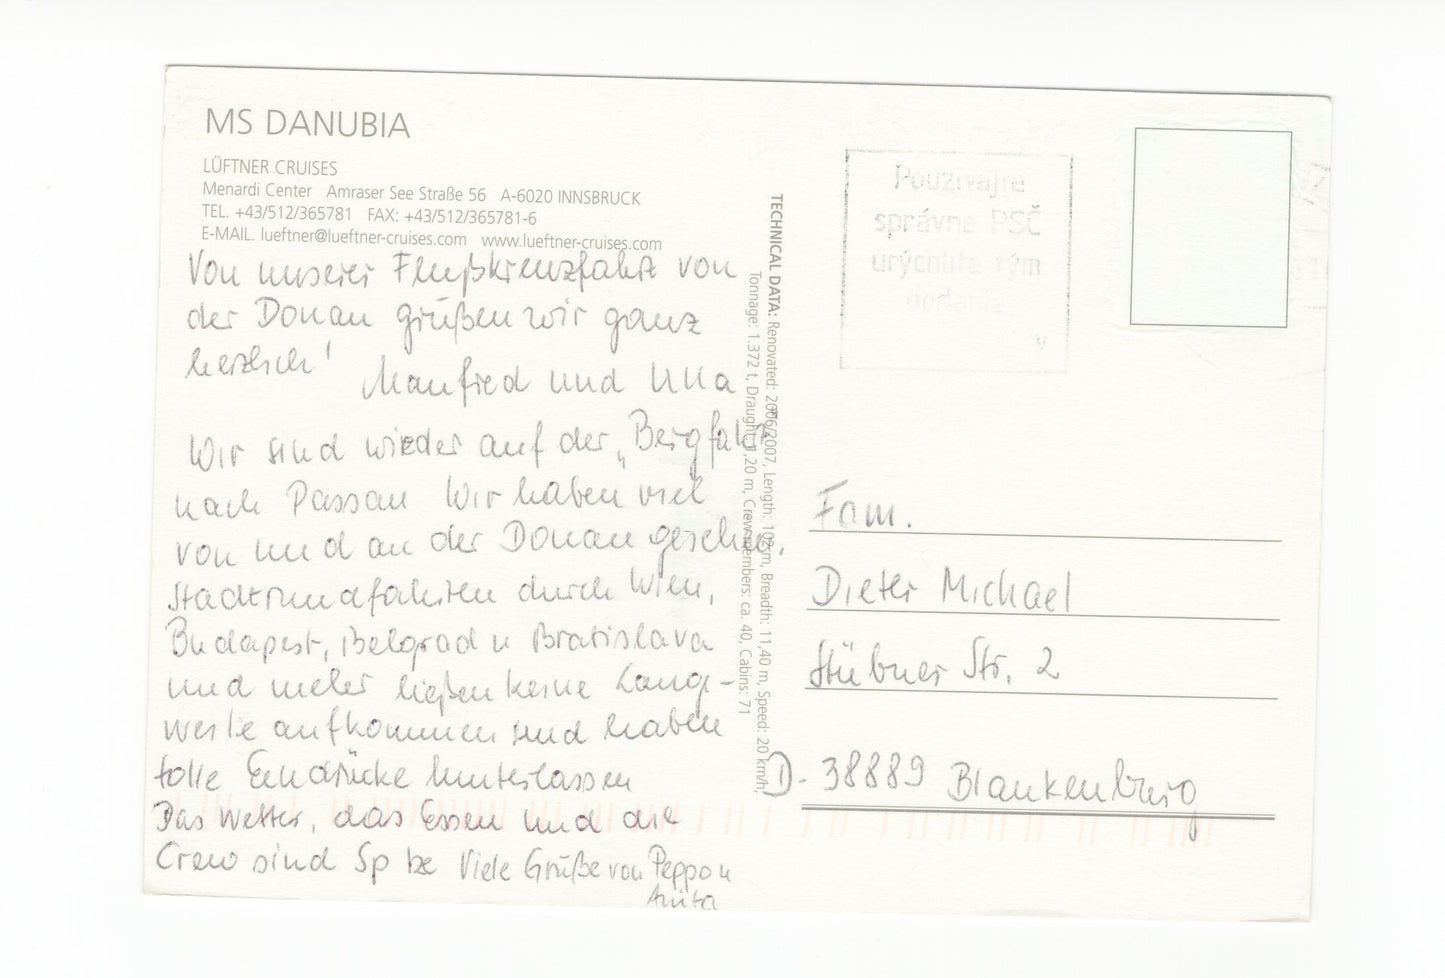 MS DANUBIA
LÜFTNER CRUISES
Menardi Center Amraser See Straße 56 A-6020 INNSBRUCK
TEL. +43/512/365781 FAX: +43/512/365781-6
E-MAIL. lueftner@lueftner-cruises.com www.lueftner-cruises.com
Von unserer Flußkreuzfahrt von
der Donau grüßen wir ganz
herzlich!
Manfred und Ulla
Wir sind wieder auf der „Bergfahrt"
nach Passau Wir haben viel
von und an der Donau gesehen.
Stadtrundfahrten durch Wien,
Budapest, Belgrad u Bratislava
und mehr ließen keine Lang-
weile aufkommen und haben
tolle Eindrücke hinterlassen
Das Wetter, das Essen und die
Crew sind Spitze Viele Grüße von Peppo u
Anita
TECHNICAL DATA: Renovated: 2006/2007, Length: 102 m, Breadth: 11,40 m, Speed: 20 km/h,
Tonnage: 1.372 t, Draught: 1,20 m, Crewmembers: ca. 40, Cabins: 71
Používajte
správne PSČ
urýchlite tým
dodanie
V
Fam.
Dieter Michael
Stübner Str. 2
D-38889 Blankenburg